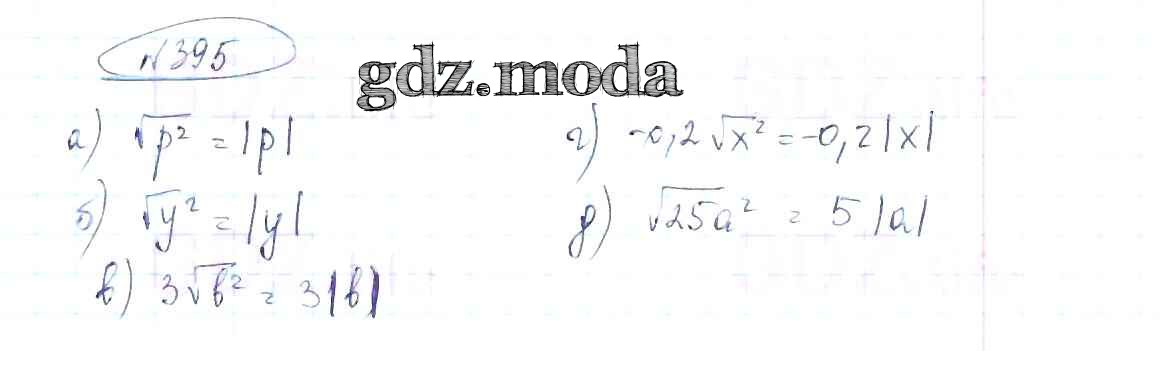 №395
gdz.moda
а) √p² = |p|
б) √y² = |y|
в) 3√b² = 3|b|
г) -0,2√x² = -0,2|x|
д) √25a² = 5|a|